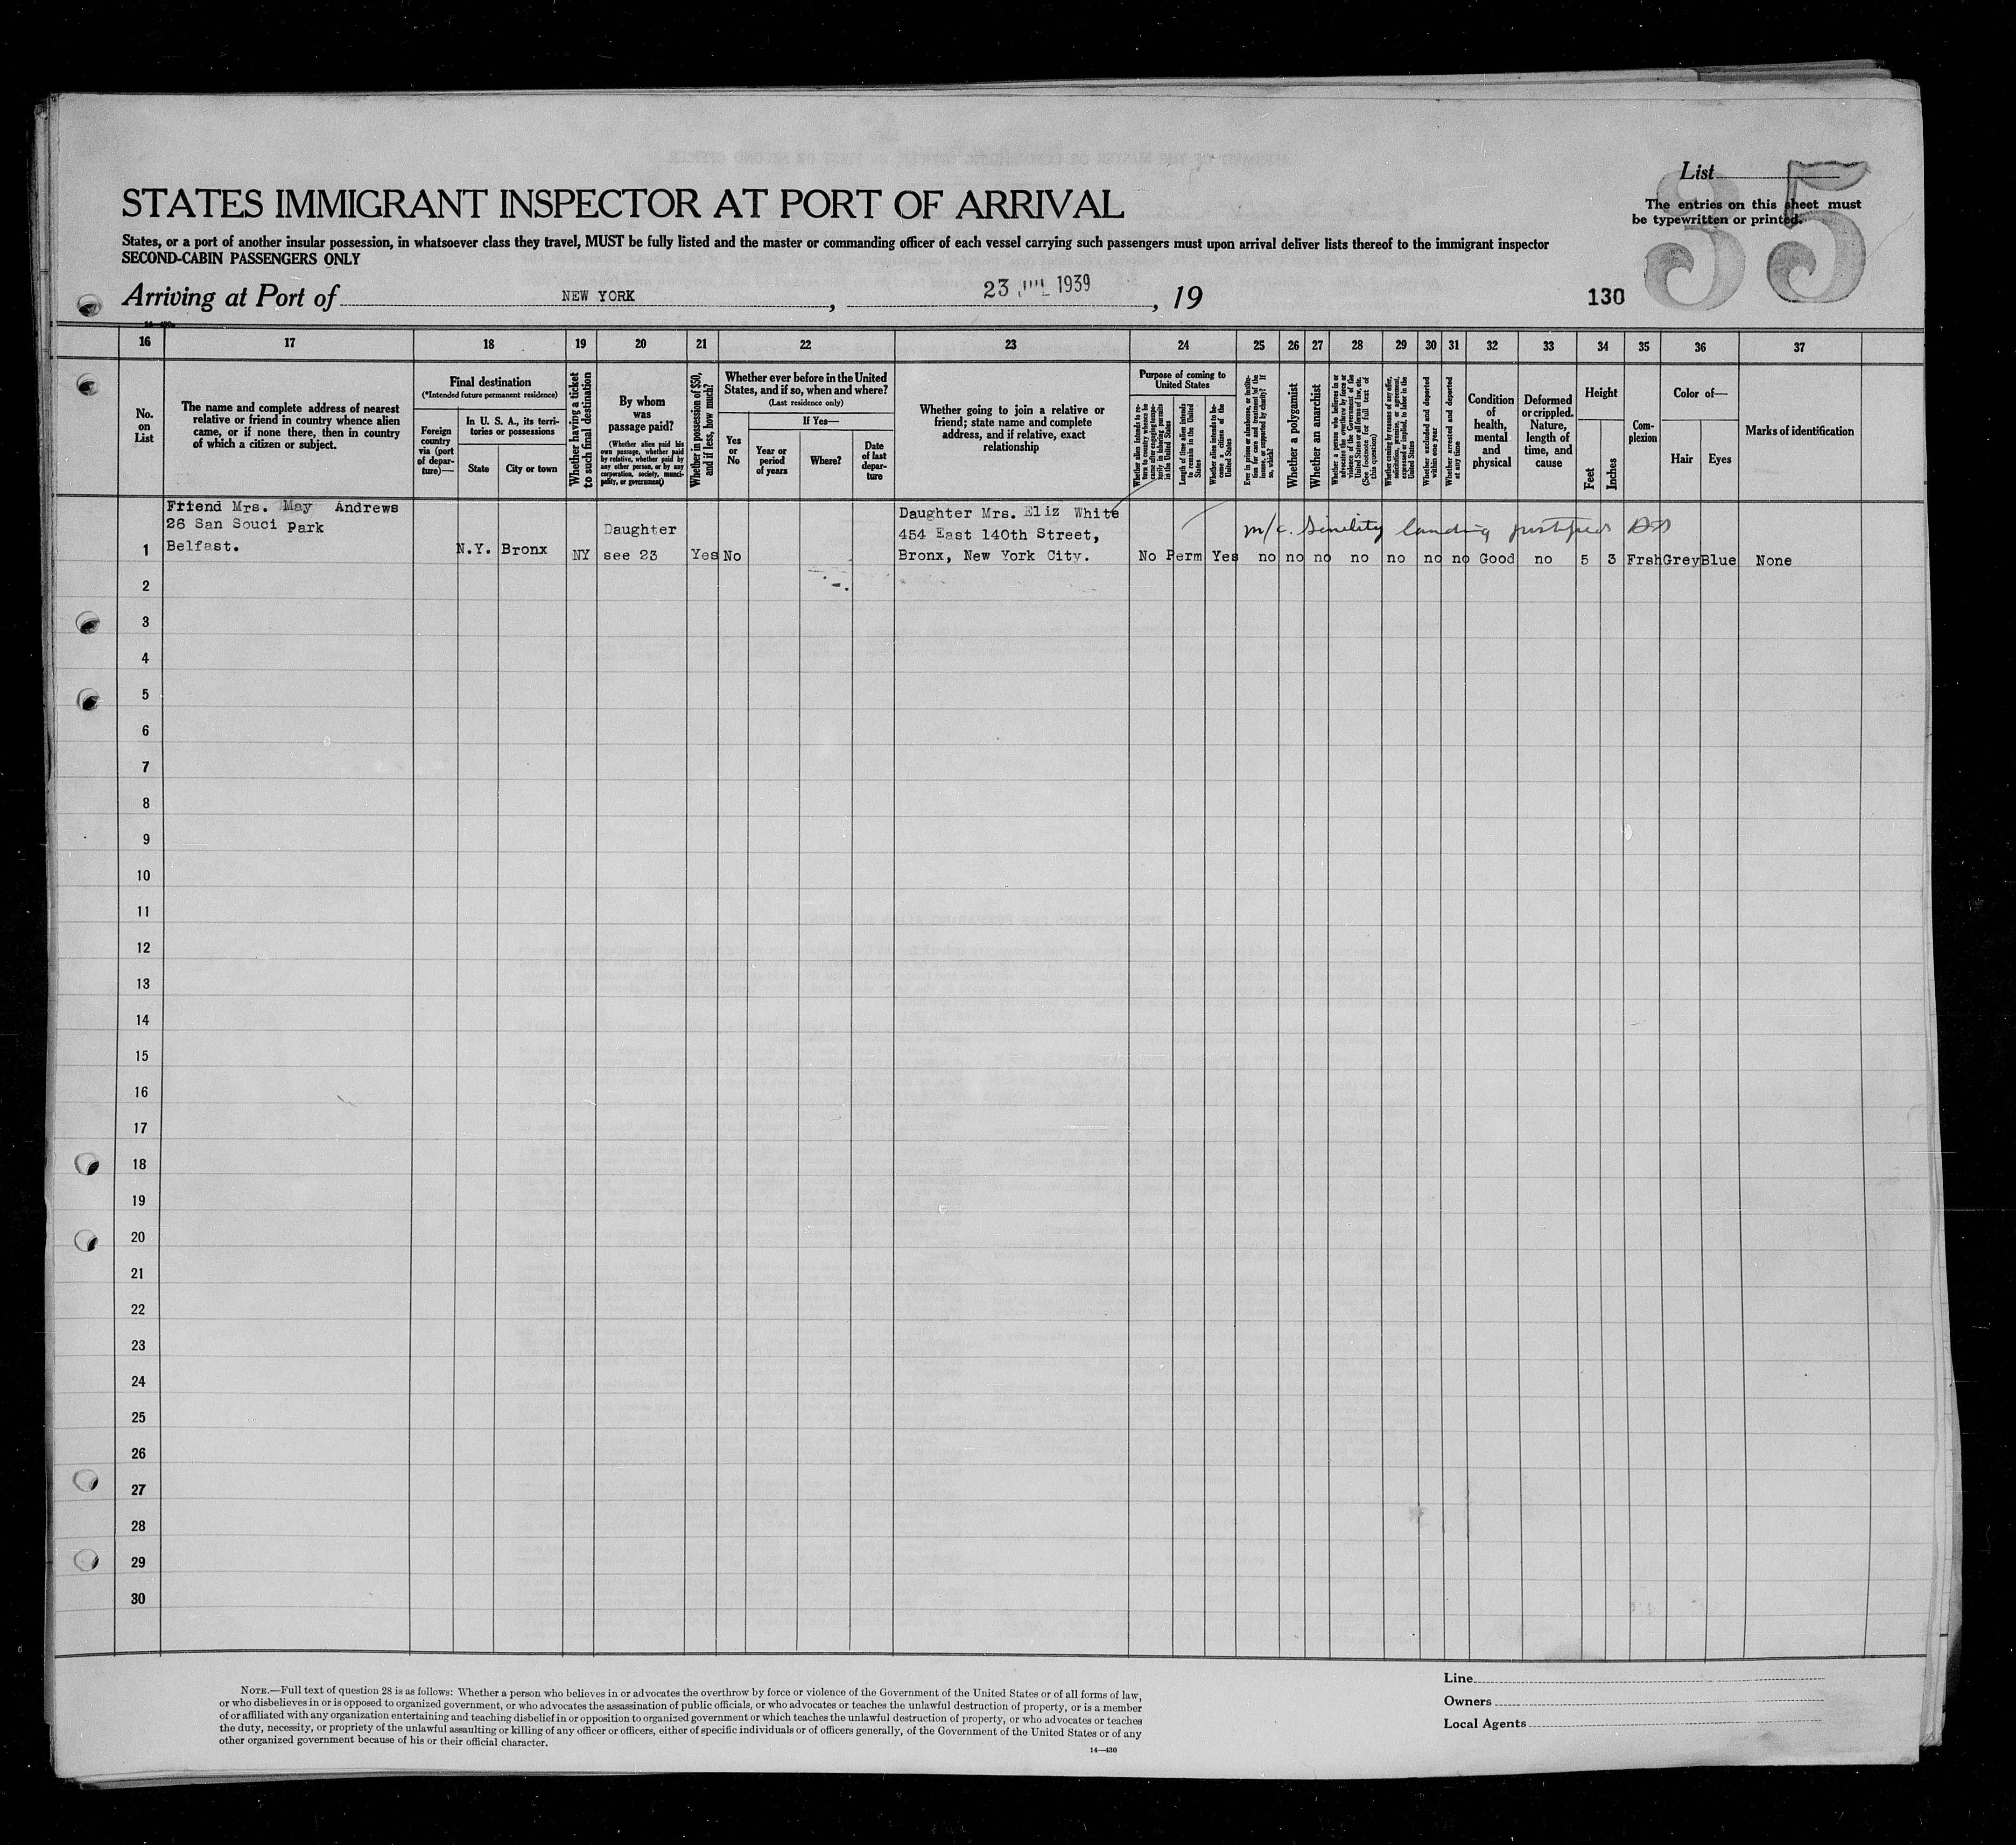 List
85
The entries on this sheet must
be typewritten or printed.
STATES IMMIGRANT INSPECTOR AT PORT OF ARRIVAL
States, or a port of another insular possession, in whatsoever class they travel, MUST be fully listed and the master or commanding officer of each vessel carrying such passengers must upon arrival deliver lists thereof to the immigrant inspector
SECOND-CABIN PASSENGERS ONLY
Arriving at Port of NEW YORK, 23 JUL 1939, 19
130
16 17 18 19 20 21 22 23 24 25 26 27 28 29 30 31 32 33 34 35 36 37
No. on List
The name and complete address of nearest
relative or friend in country whence alien
came, or if none there, then in country
of which a citizen or subject.
Final destination
(*Intended future permanent residence)
Foreign
country
via (port
of depar-
ture)—
In U. S. A., its terri-
tories or possessions
State
City or town
Whether having a ticket
to such final destination
By whom
was
passage paid?
(Whether alien paid his
own passage, whether paid
by relative, whether paid by
any other person, or by any
corporation, society, munici-
pality, or government)
Whether in possession of $50,
and if less, how much?
Whether ever before in the United
States, and if so, when and where?
(Last residence only)
Yes
or
No
If Yes—
Year or
period
of years
Where?
Date
of last
depar-
ture
Whether going to join a relative or
friend; state name and complete
address, and if relative, exact
relationship
Purpose of coming to
United States
Whether alien intends to re-
turn to country whence he
came after engaging tempo-
rarily in laboring pursuits
in the United States
Length of time alien intends
to remain in the United
States
Whether alien intends to be-
come a citizen of the
United States
Ever in prison or almshouse, or institu-
tion for care and treatment of the
insane, or supported by charity? If
so, which?
Whether a polygamist
Whether an anarchist
Whether a person who believes in or
advocates the overthrow by force or
violence of the Government of the
United States or all forms of law, etc.
(See footnote for full text of
this question)
Whether coming by reason of any offer,
solicitation, promise, or agreement,
expressed or implied, to labor in the
United States
Whether excluded and deported
within one year
Whether arrested and deported
at any time
Condition
of
health,
mental
and
physical
Deformed
or crippled.
Nature,
length of
time, and
cause
Height
Feet
Inches
Com-
plexion
Color of—
Hair
Eyes
Marks of identification
Friend Mrs. May Andrews
26 San Souci Park
Belfast.
1
N.Y. Bronx
NY
Daughter
see 23
Yes No
Daughter Mrs. Eliz White
454 East 140th Street,
Bronx, New York City.
m/c. Sinelity landing justified
No Perm Yes no no no no no no no Good no 5 3 Frsh Grey Blue None
2
3
4
5
6
7
8
9
10
11
12
13
14
15
16
17
18
19
20
21
22
23
24
25
26
27
28
29
30
NOTE.—Full text of question 28 is as follows: Whether a person who believes in or advocates the overthrow by force or violence of the Government of the United States or of all forms of law,
or who disbelieves in or is opposed to organized government, or who advocates the assassination of public officials, or who advocates or teaches the unlawful destruction of property, or is a member
of or affiliated with any organization entertaining and teaching disbelief in or opposition to organized government or which teaches the unlawful destruction of property, or who advocates or teaches
the duty, necessity, or propriety of the unlawful assaulting or killing of any officer or officers, either of specific individuals or of officers generally, of the Government of the United States or of any
other organized government because of his or their official character.
14—430
Line
Owners
Local Agents